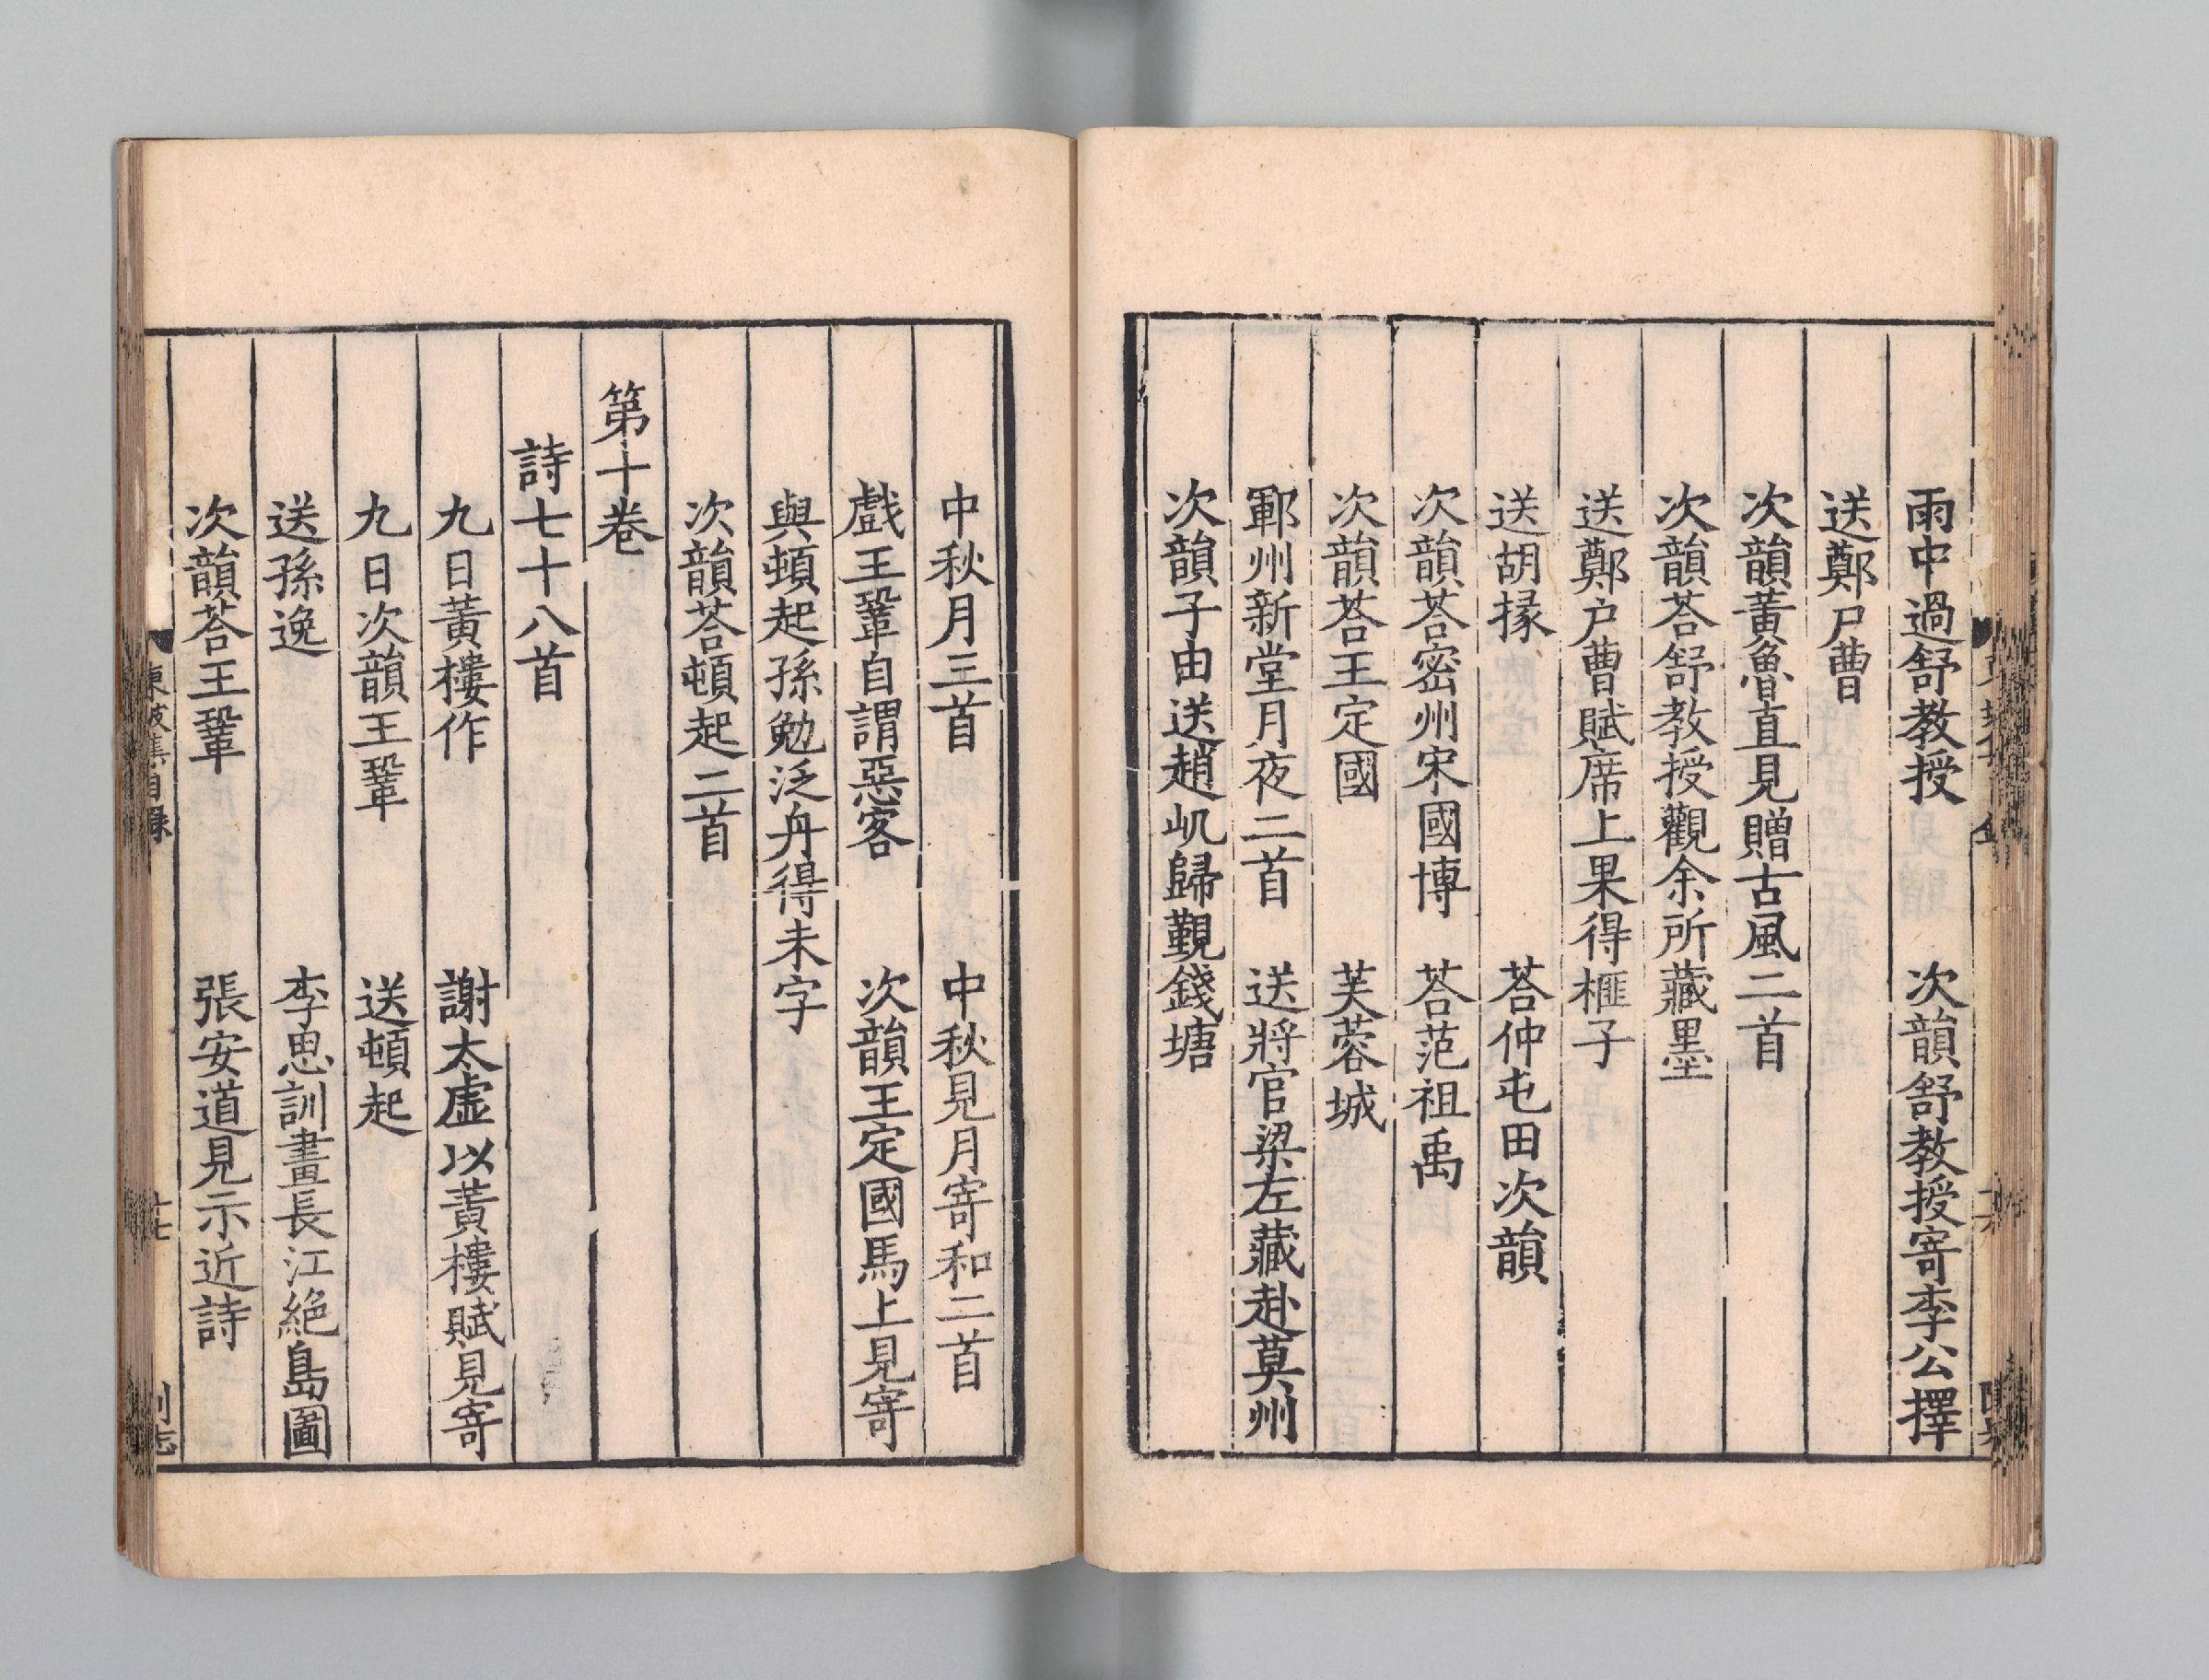 雨中過舒教授　次韻舒教授寄李公擇
送鄭戶曹
次韻黃魯直見贈古風二首
次韻荅舒教授觀余所藏墨
送鄭户曹賦席上果得榧子
送胡掾　荅仲屯田次韻
次韻荅密州宋國博　荅范祖禹
次韻荅王定國　芙蓉城
鄆州新堂月夜二首　送將官梁左藏赴莫州
次韻子由送趙㞦歸覲錢塘
中秋月三首　中秋見月寄和二首
戲王鞏自謂惡客　次韻王定國馬上見寄
與頓起孫勉泛舟得未字
次韻荅頓起二首
第十卷
詩七十八首
九日黃樓作　謝太虛以黃樓賦見寄
九日次韻王鞏　送頓起
送孫逸　李思訓畫長江絕島圖
次韻荅王鞏　張安道見示近詩
東坡集目録
十七